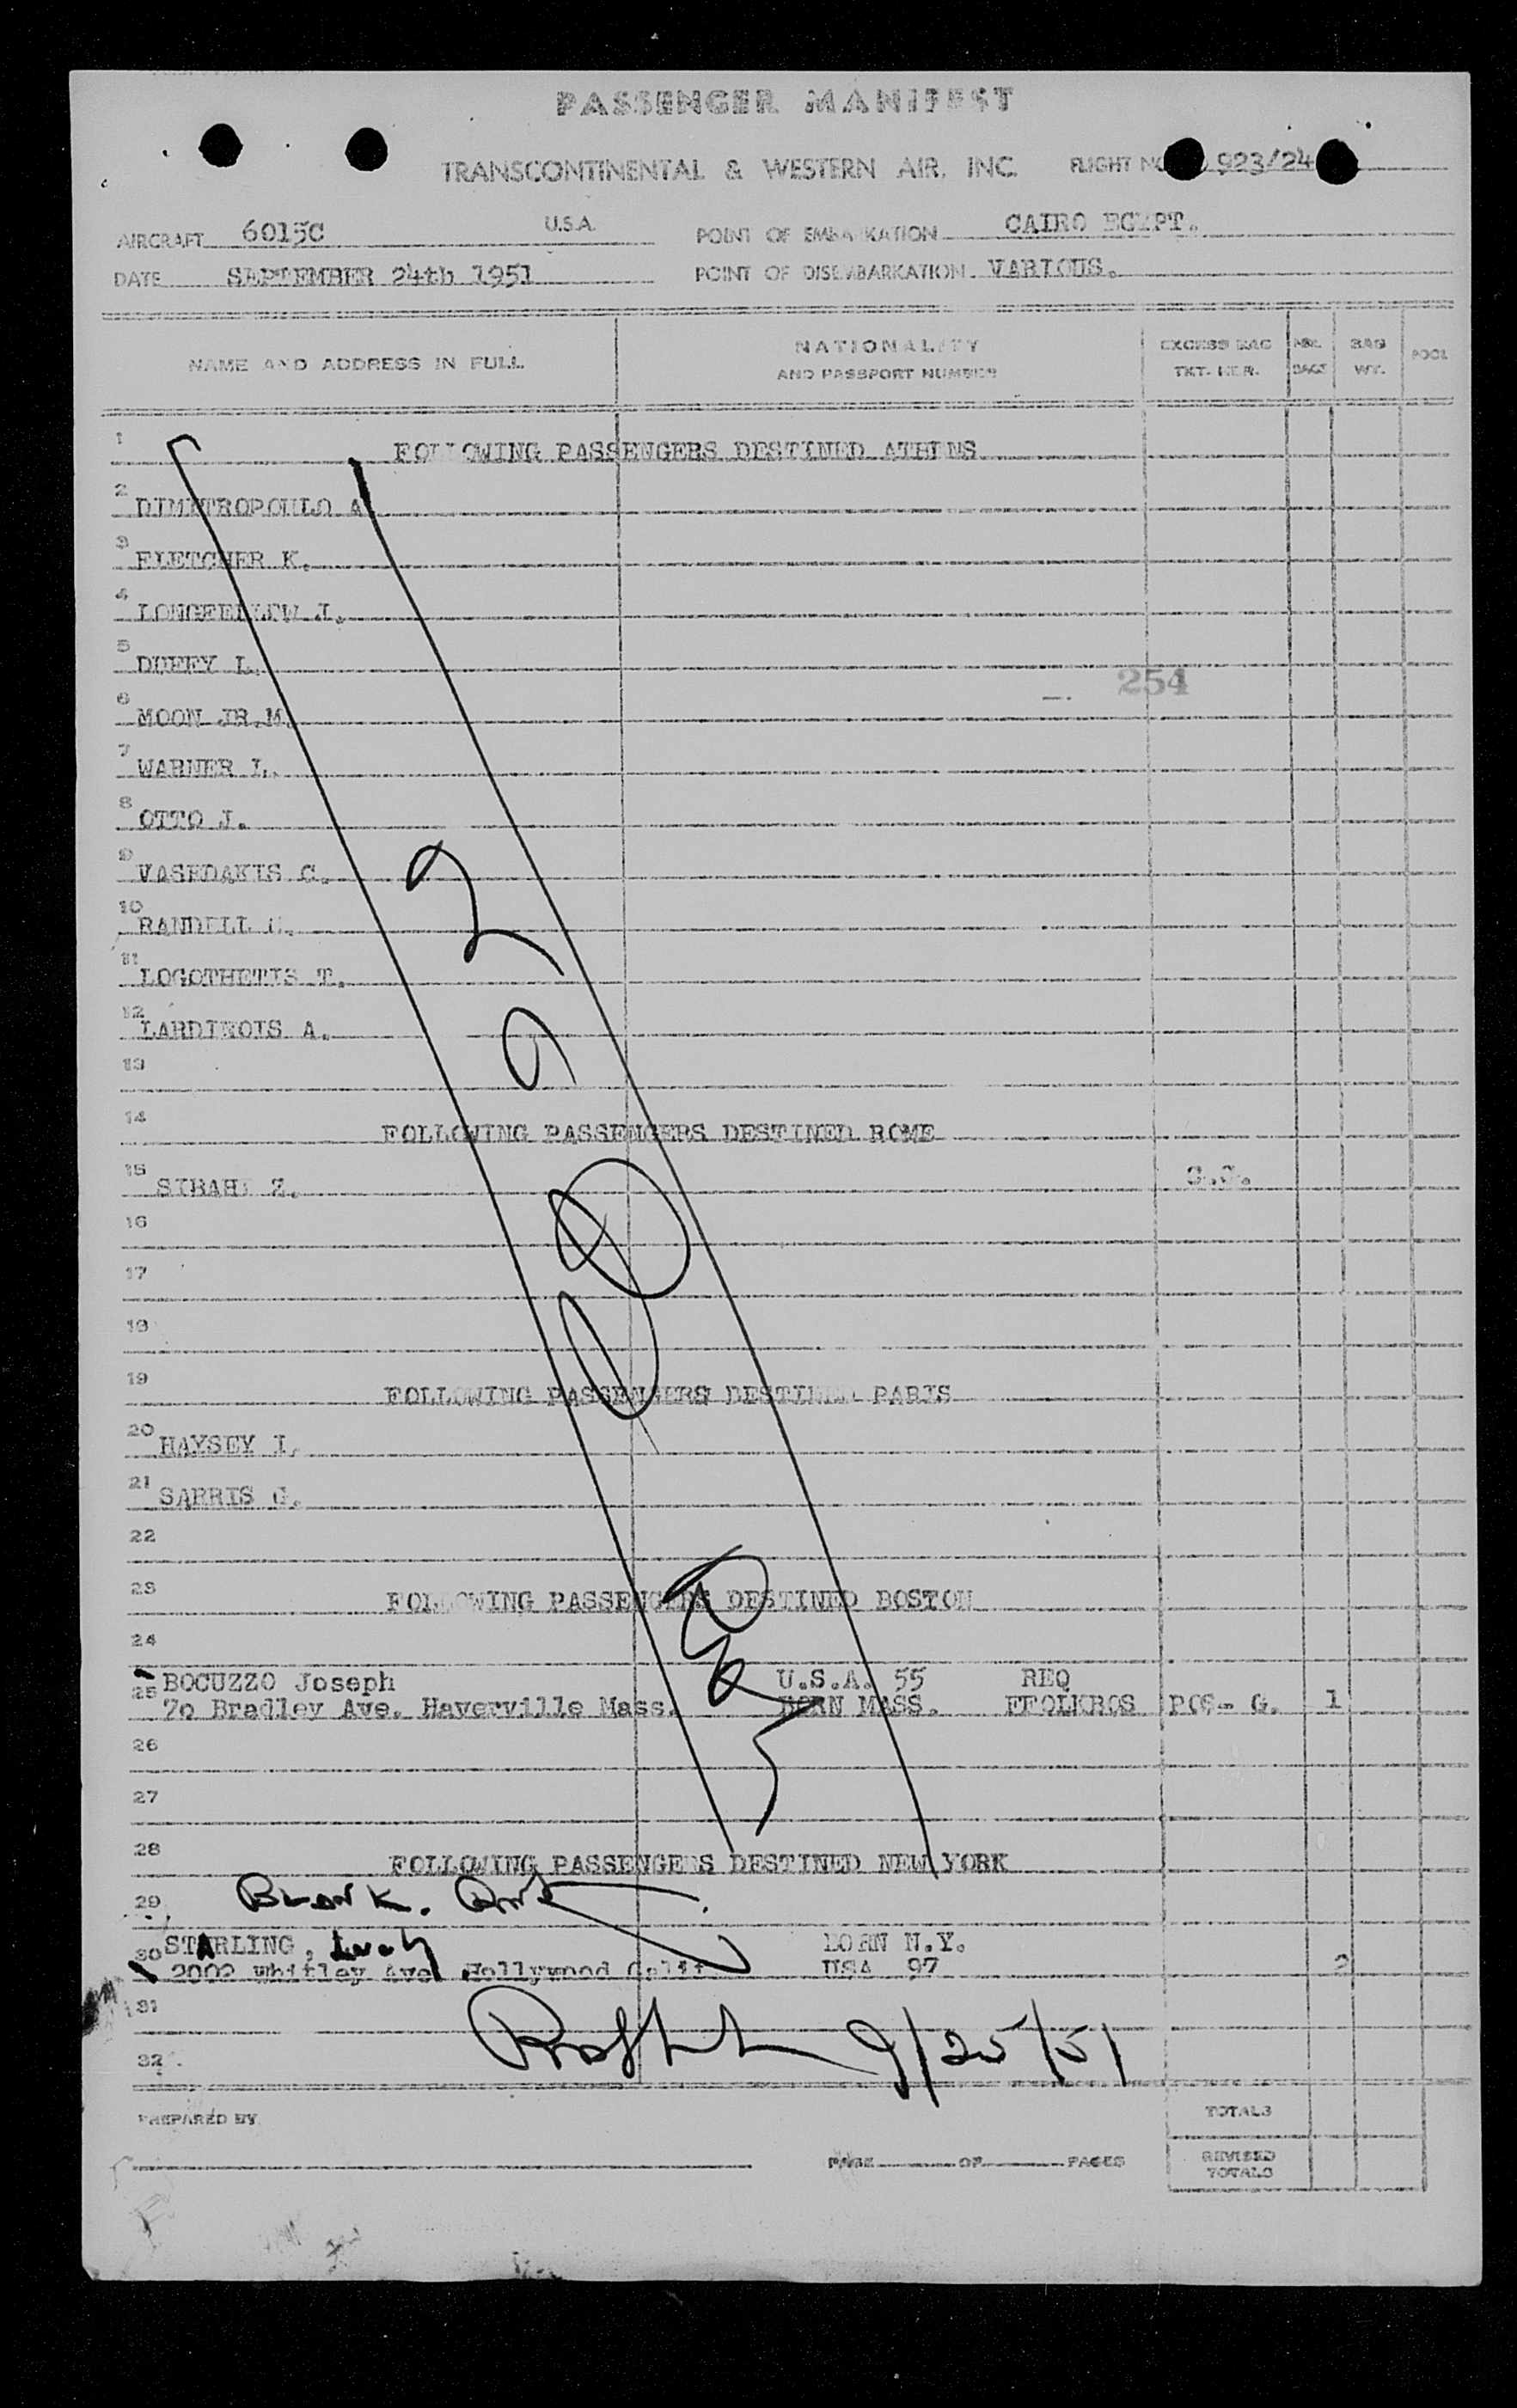 PASSENGER MANIFEST
TRANSCONTINENTAL & WESTERN AIR, INC. FLIGHT NO 923/24
AIRCRAFT 6015C U.S.A. POINT OF EMBARKATION CAIRO EGYPT.
DATE SEPTEMBER 24th 1951 POINT OF DISEMBARKATION VARIOUS.
NAME AND ADDRESS IN FULL NATIONALITY AND PASSPORT NUMBER EXCESS BAG TKT. NER. BAGS BAG WT. POOL
1 FOLLOWING PASSENGERS DESTINED ATHENS
2 DIMITROPOULO A.
3 FLETCHER K.
4 LONGFELLOW J.
5 DUFFY L.
254
6 MOON JR.M.
7 WARNER L.
8 OTTO J.
9 VASEDAKIS C.
10 RANDELL
11 LOGOTHETIS T.
12 LARDINOIS A.
13
14 FOLLOWING PASSENGERS DESTINED ROME
15 SIBAHI Z.
16
17
18
19 FOLLOWING PASSENGERS DESTINED PARIS
20 HAYSEY I.
21 SARRIS G.
22
23 FOLLOWING PASSENGERS DESTINED BOSTON
24
BOCUZZO Joseph U.S.A. 55 REQ
25 70 Bradley Ave. Haverville Mass. BORN MASS. POS- G. 1
26
27
28 FOLLOWING PASSENGERS DESTINED NEW YORK
29
STARLING, BORN N.Y.
30 2002 Whitley Ave Hollywood Calif USA 97 2
31
9/25/51
32
PREPARED BY TOTALS
PAGE OF PAGES REVISED TOTALS